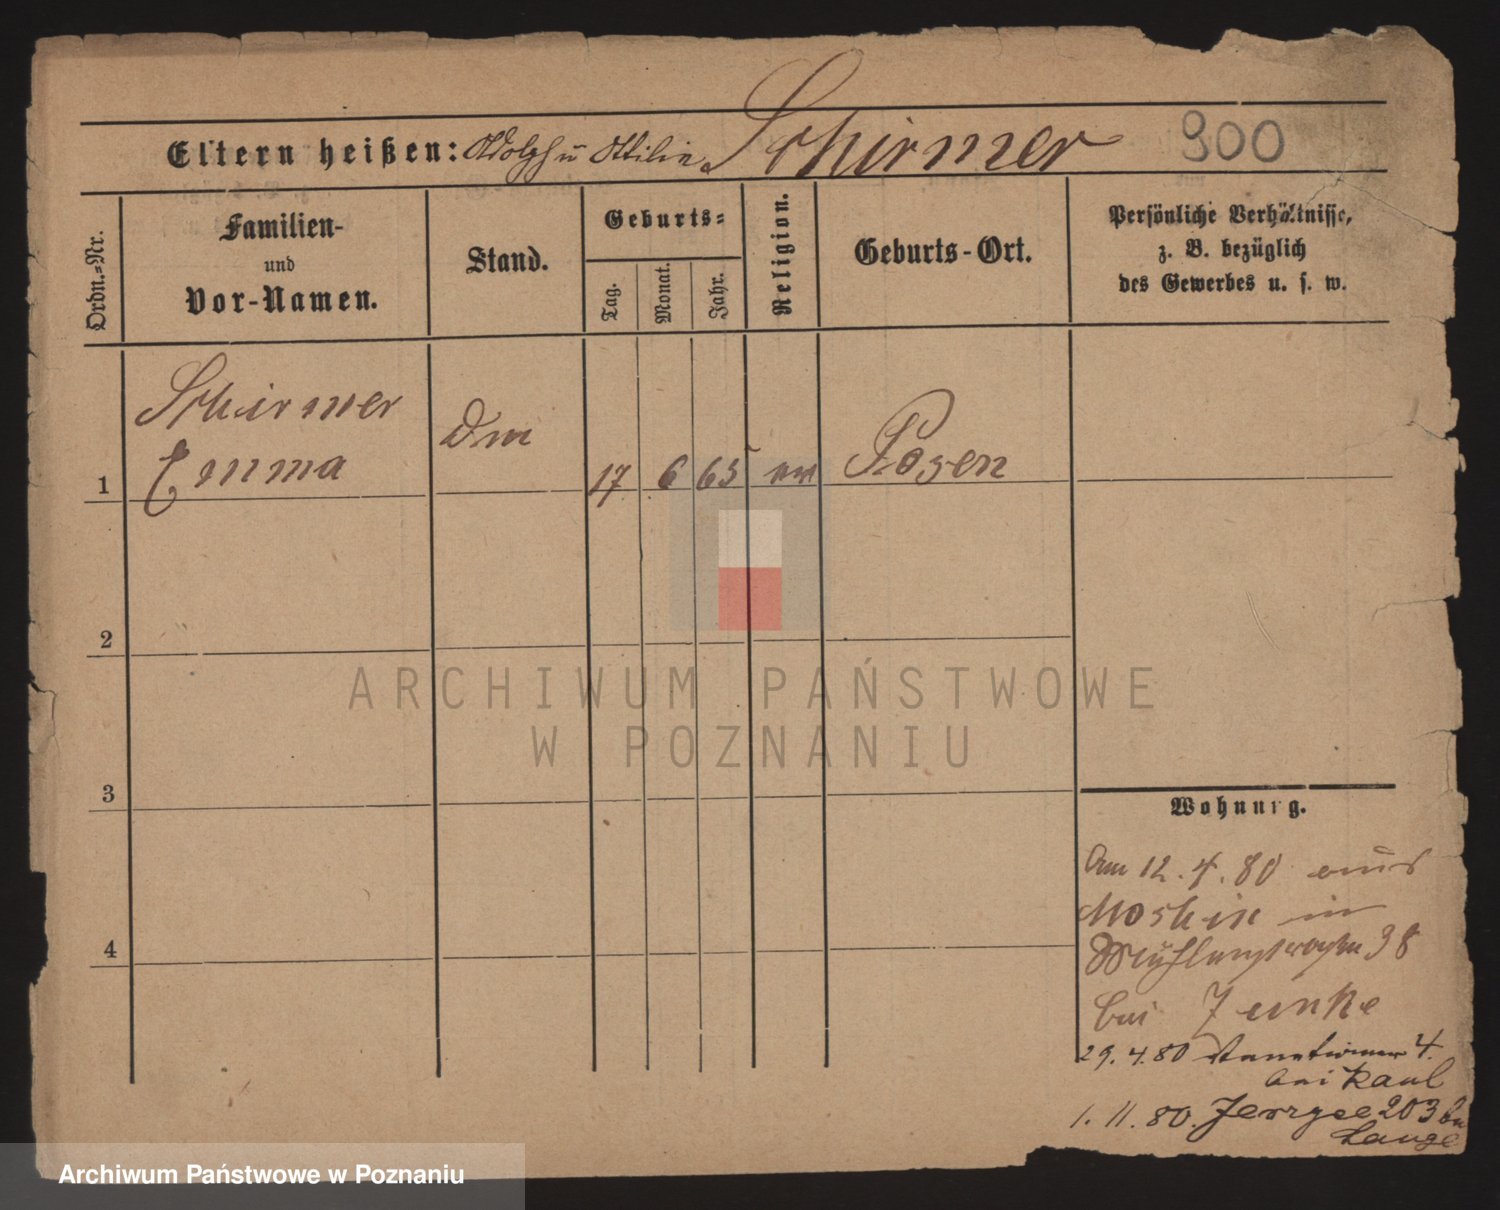 Eltern heißen: Adolph u Ottilie Schirmer 900
Ordn.=Nr.
Familien-
und
Vor-Namen.
Stand.
Geburts=
Tag.
Monat.
Jahr.
Religion.
Geburts-Ort.
Persönliche Verhältnisse,
z. B. bezüglich
des Gewerbes u. s. w.
Schirmer
Emma
1
17 6 65 ev Posen
2
3
4
Wohnung.
Am 12.4.80 aus
Moshin in
38
bei Zenke
29.4.80 4.
bei Kaul
1. 11. 80. Jerzyce 203 bei
Lange
ARCHIWUM PAŃSTWOWE
W POZNANIU
Archiwum Państwowe w Poznaniu